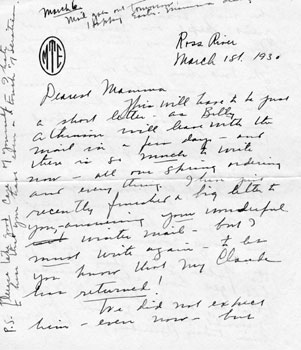 March 6
Mail goes out tomorrow
Happy Easter Mamma
MTE
Ross River
March 1st. 1930
Dearest Mamma
This will have to be just
a short letter - as Billy
Atkinson will leave with the
mail in a few days - and
there is so much to write
now - all our spring ordering
and everything. I have just
recently finished a big letter to
you, answering your wonderful
winter mail - but I
must write again - to let
you know that my Claude
has returned!
We did not expect
him - even now - but
P.S. Please take good care of yourself